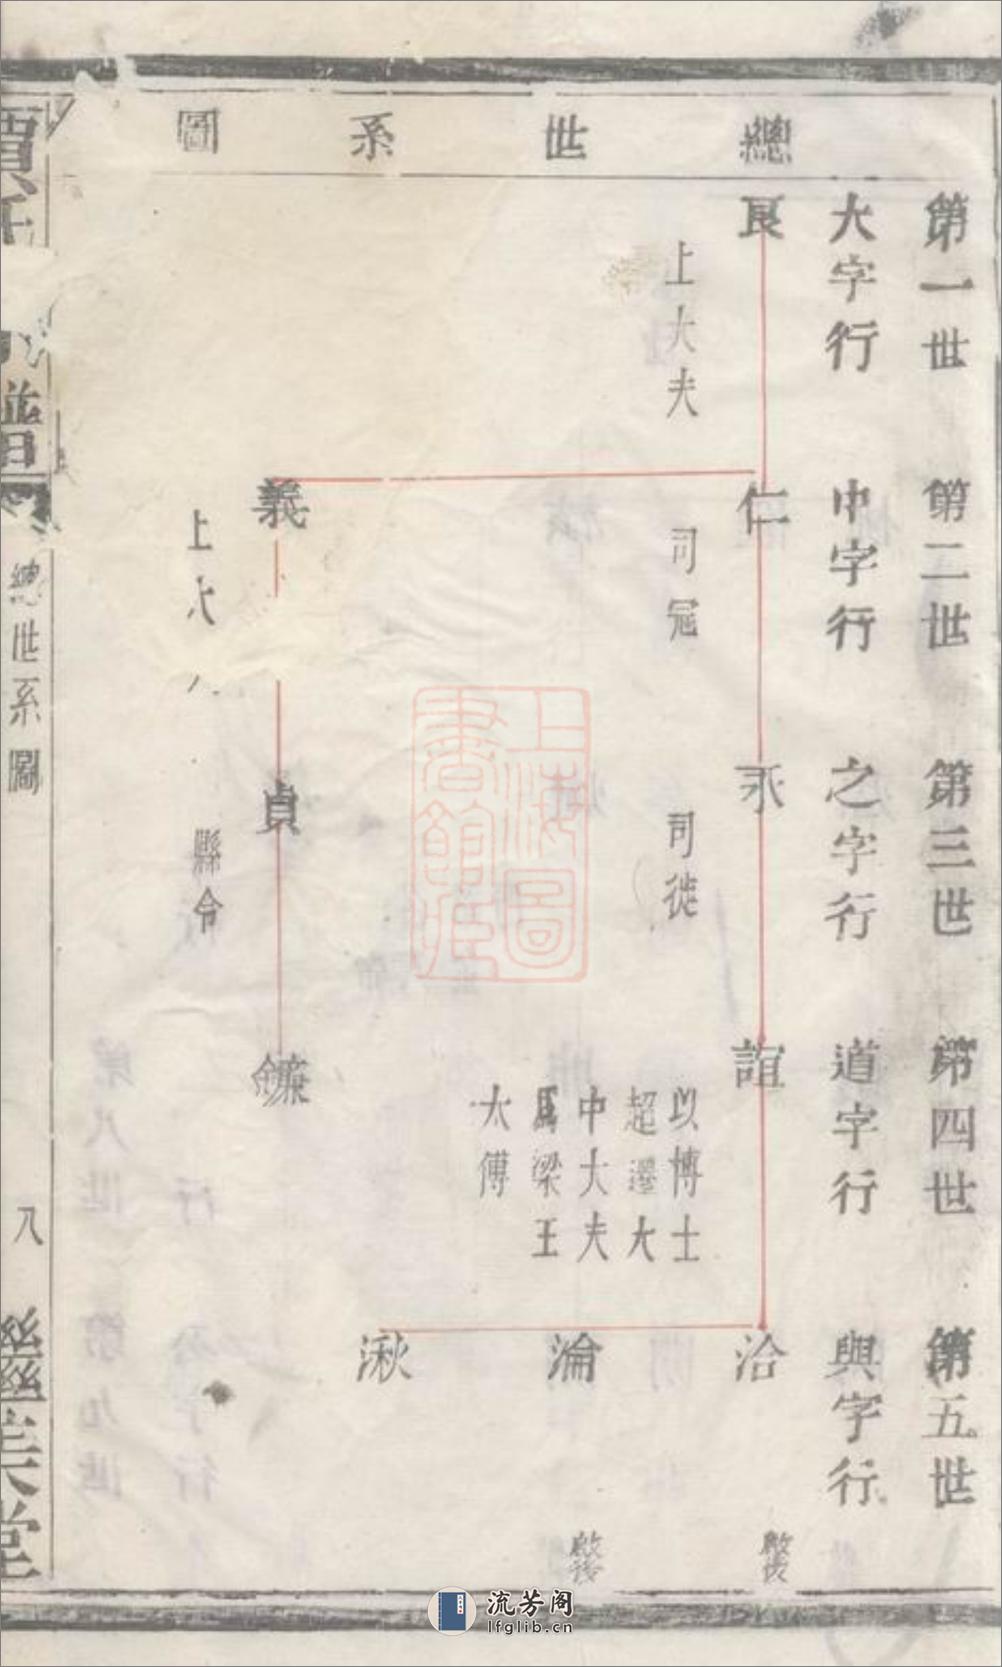 總世系圖
第一世
大字行
良
上大夫
第二世
中字行
仁
司冦
義
上大
第三世
之字行
永
司徒
貞
縣令
第四世
道字行
誼
以博士
超遷大
中大夫
爲梁王
太傅
鐮
第五世
與字行
洽
啟後
淪
啟後
湫
賈氏
譜
總世系圖
八
繼美堂
上海圖書館藏
流芳阁
lfglib.cn